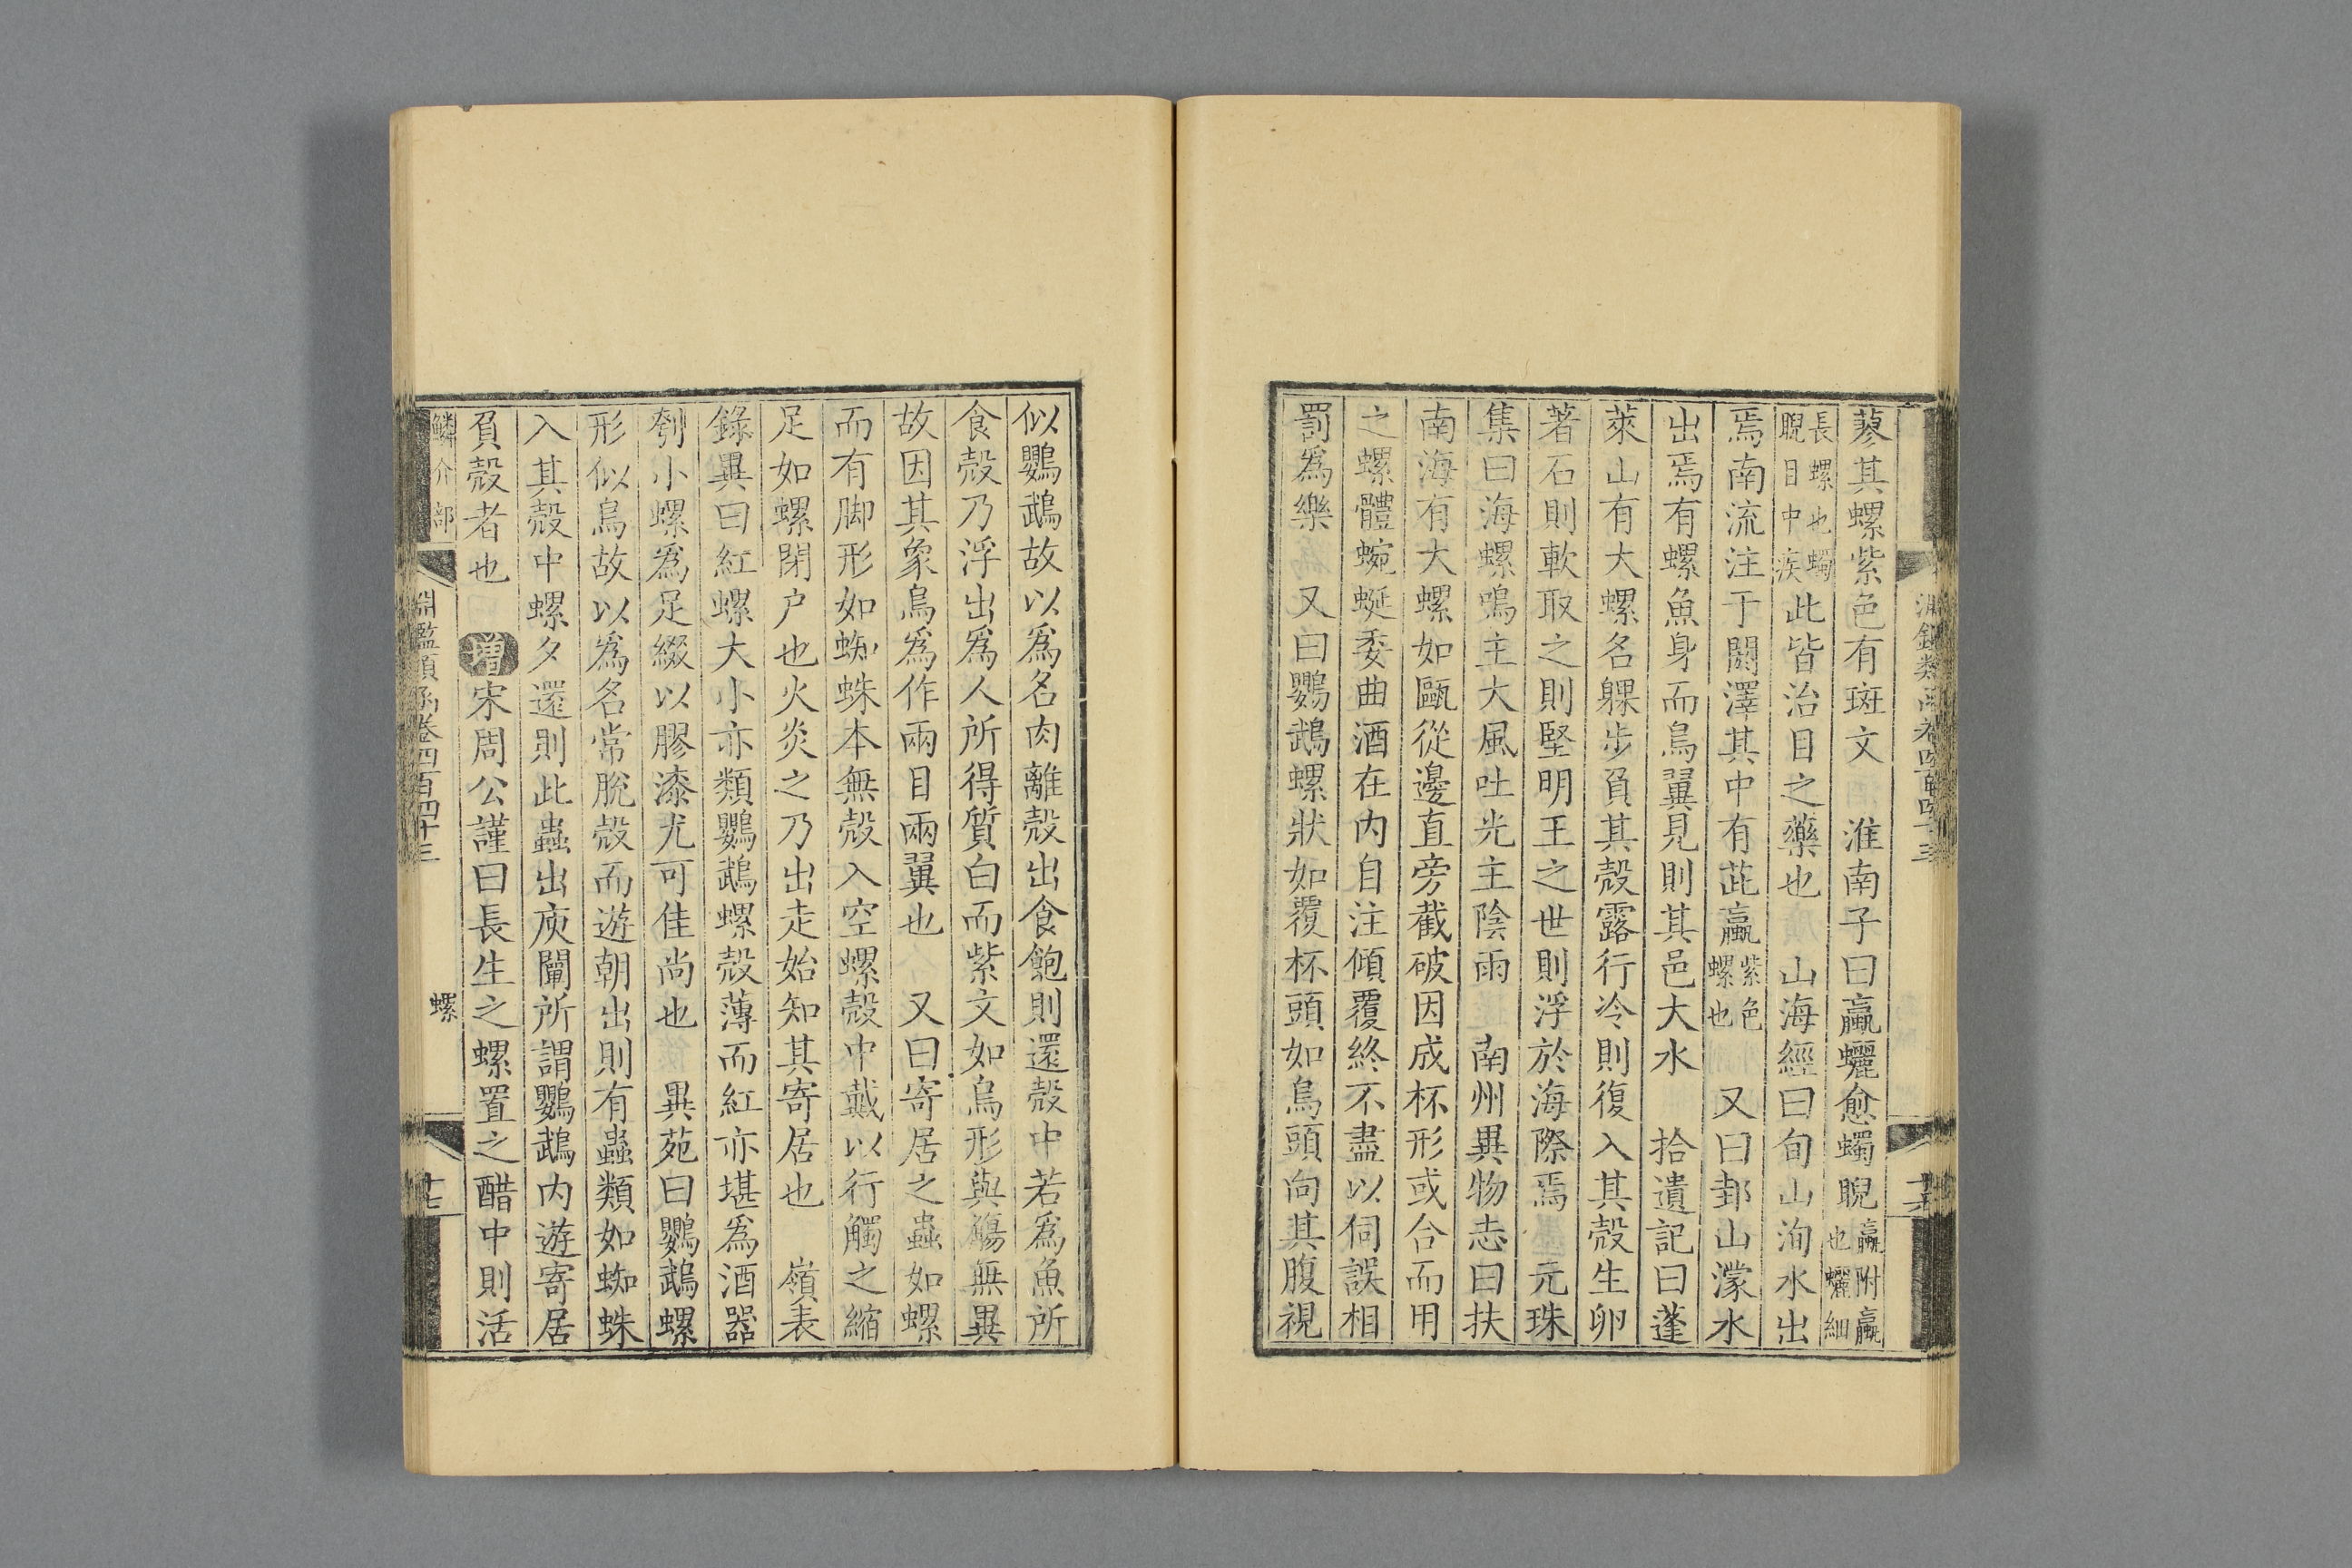 蓼其螺紫色有斑文　淮南子曰蠃蠡愈蠋睨蠃附蠃也蠡細
長螺也蠋睨目中疾此皆治目之藥也　山海經曰旬山洵水出
焉南流注于閼澤其中有茈蠃紫色螺也　又曰邽山濛水
出焉有螺魚身而鳥翼見則其邑大水　拾遺記曰蓬
萊山有大螺名躶步負其殻露行冷則復入其殻生卵
著石則軟取之則堅明王之世則浮於海際焉　元珠
集曰海螺鳴主大風吐光主陰雨　南州異物志曰扶
南海有大螺如甌從邊直旁截破因成杯形或合而用
之螺體蜿蜒委曲酒在内自注傾覆終不盡以伺誤相
罰爲樂　又曰鸚鵡螺狀如覆杯頭如鳥頭向其腹視
似鸚鵡故以爲名肉離殻出食飽則還殻中若爲魚所
食殻乃浮出爲人所得質白而紫文如鳥形與觴無異
故因其象鳥爲作兩目兩翼也　又曰寄居之蟲如螺
而有脚形如蜘蛛本無殻入空螺殻中戴以行觸之縮
足如螺閉户也火炙之乃出走始知其寄居也　嶺表
錄異曰紅螺大小亦類鸚鵡螺殻薄而紅亦堪爲酒器
刳小螺爲足綴以膠漆尤可佳尚也　異苑曰鸚鵡螺
形似鳥故以爲名常脫殻而遊朝出則有蟲類如蜘蛛
入其殻中螺夕還則此蟲出庾闡所謂鸚鵡内遊寄居
負殻者也　增宋周公謹曰長生之螺置之醋中則活
鱗介部
淵鑑類函卷四百四十三
螺
十七